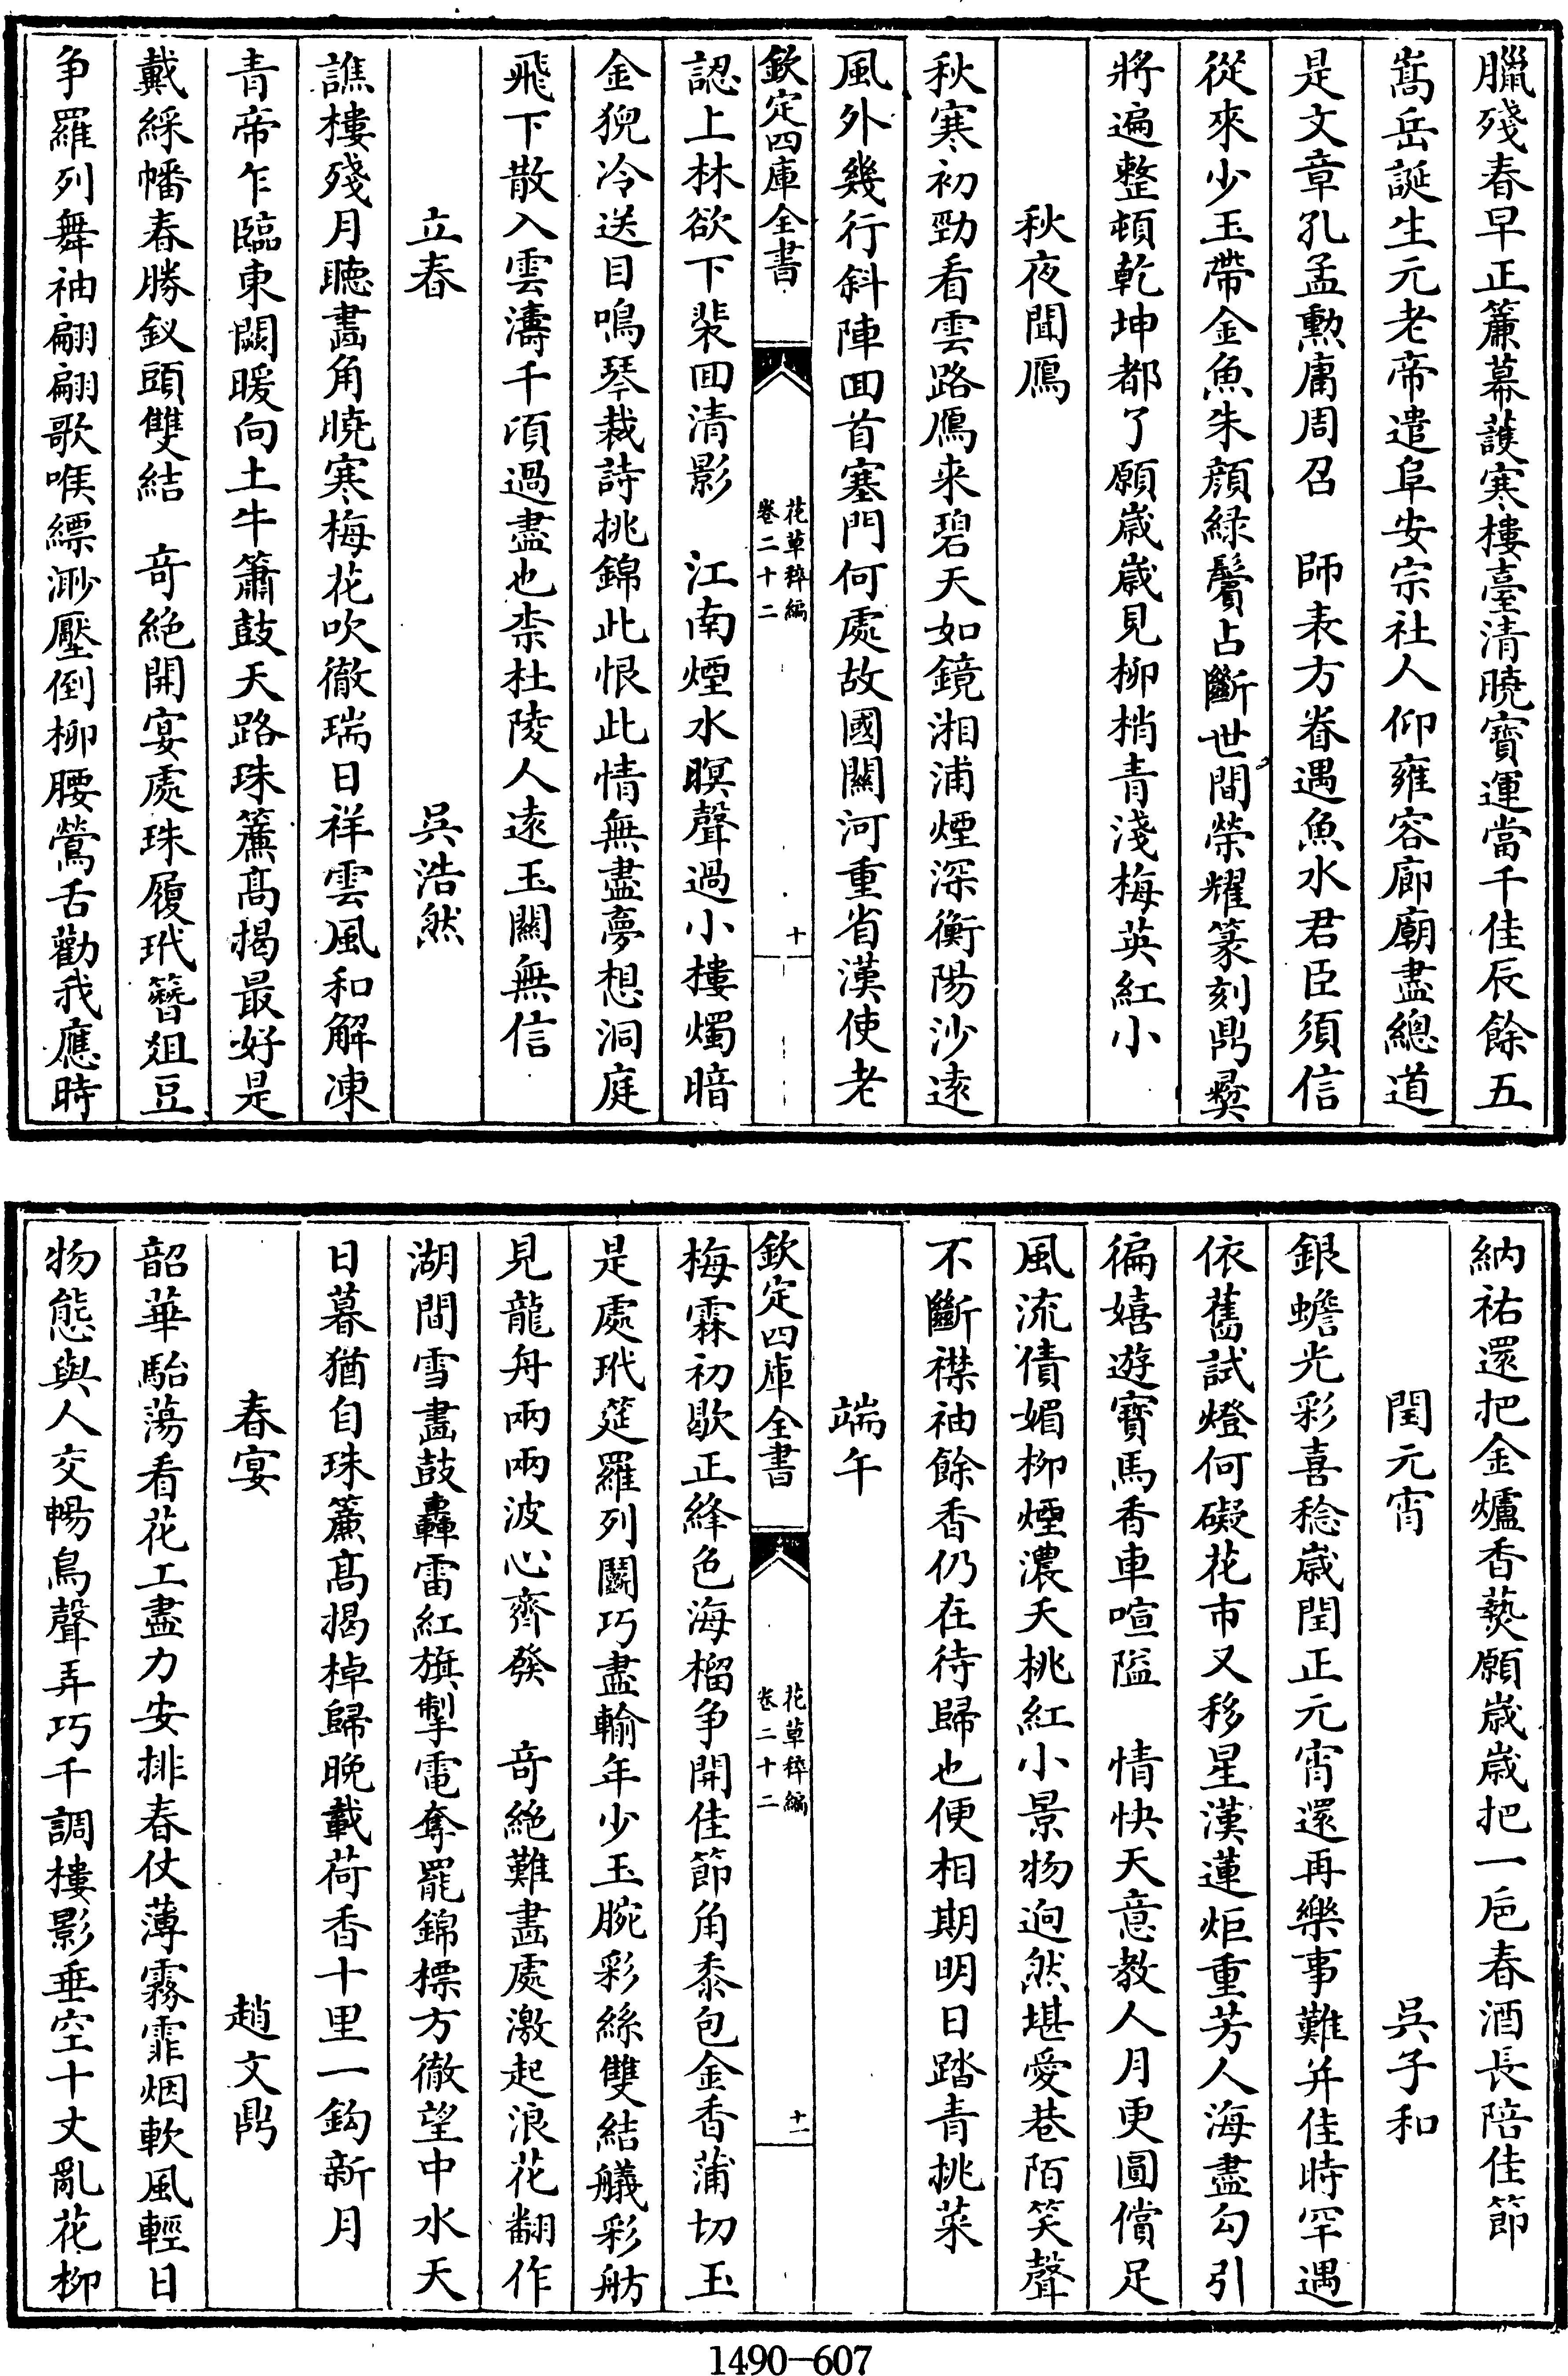 臘殘春早正簾幕護寒樓臺清曉寶運當千佳辰餘五
嵩岳誕生元老帝遣阜安宗社人仰雍容廊廟盡總道
是文章孔孟勲庸周召　師表方眷遇魚水君臣須信
從來少玉帶金魚朱顔緑鬢占斷世間榮耀篆刻鼎彛
將遍整頓乾坤都了願歳歳見柳梢青淺梅英紅小
秋夜聞鴈
秋寒初勁看雲路鴈來碧天如鏡湘浦煙深衡陽沙逺
風外幾行斜陣回首塞門何處故國關河重省漢使老
欽定四庫全書
花草稡編
卷二十二
十
認上林欲下裴回清影　江南煙水暝聲過小樓燭暗
金猊冷送目鳴琴裁詩挑錦此恨此情無盡夢想洞庭
飛下散入雲濤千頃過盡也柰杜陵人逺玉關無信
立春　吳浩然
譙樓殘月聽畫角曉寒梅花吹徹瑞日祥雲風和解凍
青帝乍臨東闕暖向土牛簫鼓天路珠簾髙揭最好是
戴綵幡春勝釵頭雙結　竒絶開宴處珠履玳簪爼豆
争羅列舞袖翩翩歌喉縹渺壓倒柳腰鶯舌勸我應時
納祐還把金爐香爇願歳歳把一巵春酒長陪佳節
閏元宵　吳子和
銀蟾光彩喜稔歳閏正元宵還再樂事難并佳時罕遇
依舊試燈何礙花市又移星漢蓮炬重芳人海盡勾引
徧嬉遊寶馬香車喧隘　情快天意教人月更圓償足
風流債媚柳煙濃夭桃紅小景物迥然堪愛巷陌笑聲
不斷襟袖餘香仍在待歸也便相期明日踏青挑菜
端午
欽定四庫全書
花草稡編
卷二十二
十一
梅霖初歇正絳色海榴争開佳節角黍包金香蒲切玉
是處玳筵羅列鬭巧盡輸年少玉腕彩絲雙結艤彩舫
見龍舟兩兩波心齊發　竒絶難畫處激起浪花翻作
湖間雪畫鼓轟雷紅旗掣電奪罷錦標方徹望中水天
日暮猶自珠簾髙揭棹歸晚載荷香十里一鈎新月
春宴　趙文鼎
韶華駘蕩看花工盡力安排春仗薄霧霏烟軟風輕日
物態與人交暢鳥聲弄巧千調樓影垂空十丈亂花柳
1490—607